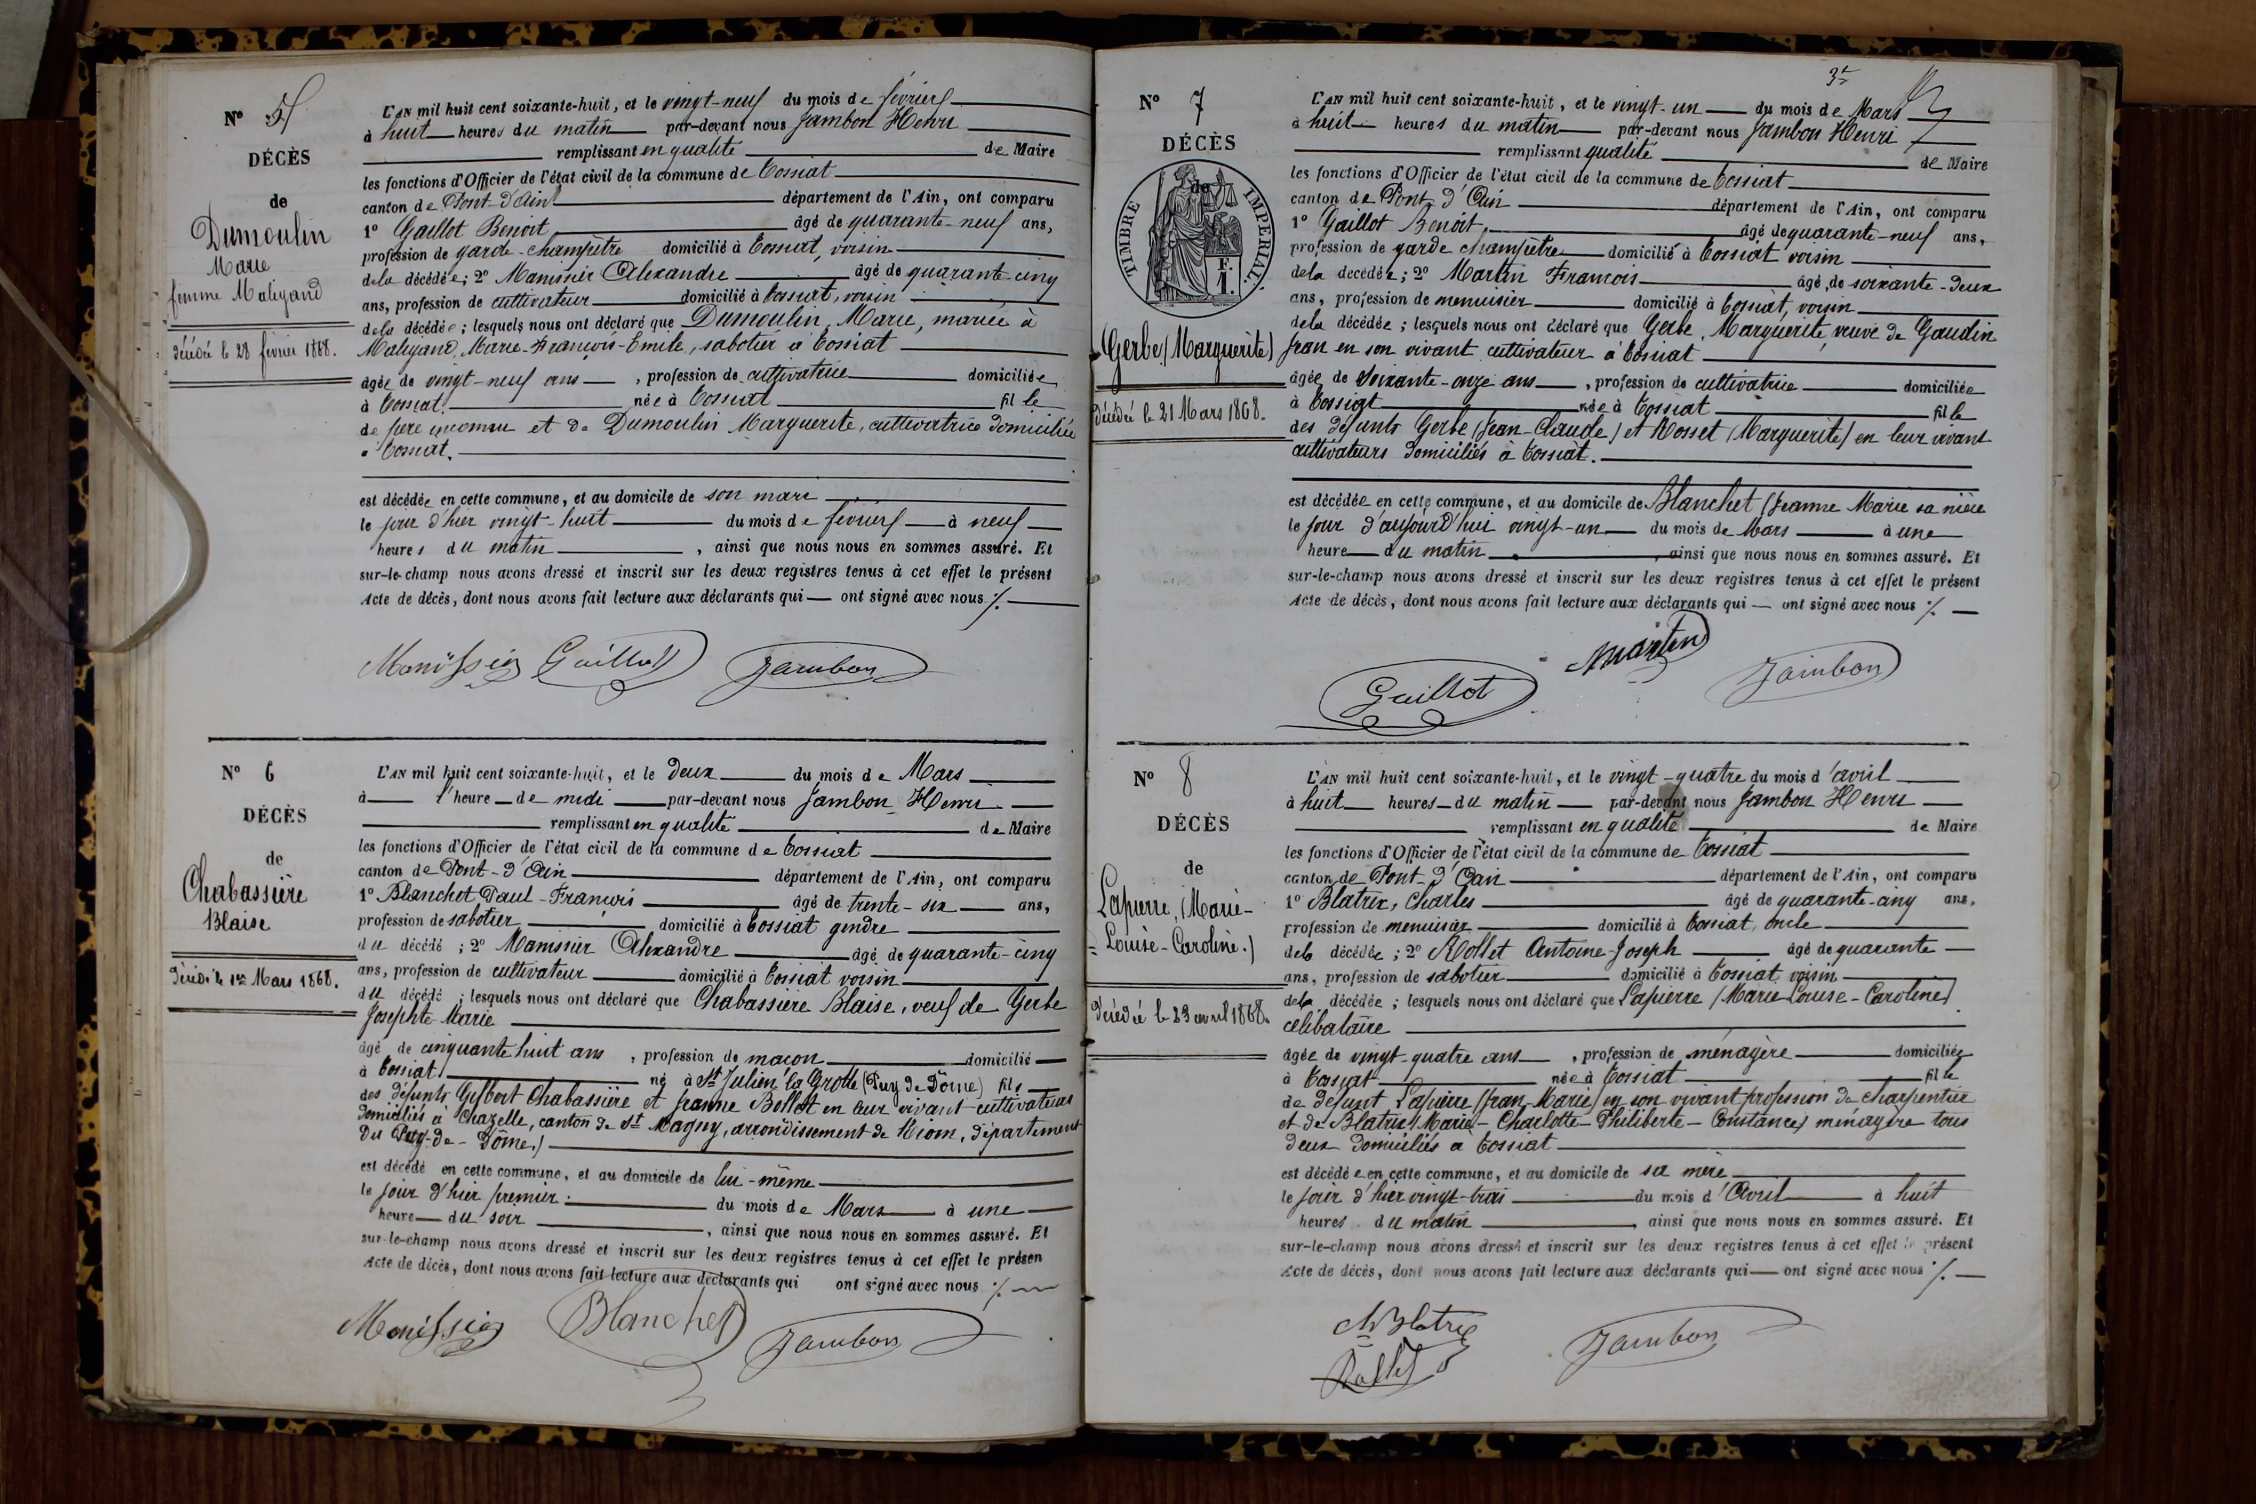 N° 5
DÉCÈS
de
Dumoulin
Marie
femme Maligand
décédé le 28 février 1868.
L'AN mil huit cent soixante-huit, et le vingt-neuf du mois de février
à huit heures du matin par-devant nous Jambon Henri
remplissant en qualité de Maire
les fonctions d'Officier de l'état civil de la commune de Tossiat
canton de Pont-d'Ain département de l'Ain, ont comparu
1° Gaillot Benoit âgé de quarante-neuf ans,
profession de garde-champêtre domicilié à Tossiat, voisin
de la décédée; 2° Manissier Alexandre âgé de quarante-cinq
ans, profession de cultivateur domicilié à Tossiat, voisin
de la décédée; lesquels nous ont déclaré que Dumoulin, Marie, mariée à
Maligand, Marie-François-Emile, sabotier à Tossiat
âgée de vingt-neuf ans, profession de cultivatrice domiciliée
à Tossiat. née à Tossiat fille
de père inconnu et de Dumoulin Marguerite, cultivatrice domiciliée
à Tossiat.
est décédée en cette commune, et au domicile de son mari
le jour d'hier vingt-huit du mois de février à neuf
heures du matin, ainsi que nous nous en sommes assuré. Et
sur-le-champ nous avons dressé et inscrit sur les deux registres tenus à cet effet le présent
Acte de décès, dont nous avons fait lecture aux déclarants qui ont signé avec nous ./.
Manissier Gaillot Jambon
N° 6
DÉCÈS
de
Chabassière
Blaise
décédé le 1er Mars 1868.
L'AN mil huit cent soixante-huit, et le deux du mois de Mars
à l'heure de midi par-devant nous Jambon Henri
remplissant en qualité de Maire
les fonctions d'Officier de l'état civil de la commune de Tossiat
canton de Pont-d'Ain département de l'Ain, ont comparu
1° Blanchet Paul-François âgé de trente-six ans,
profession de sabotier domicilié à Tossiat gendre
du décédé; 2° Manissier Alexandre âgé de quarante-cinq
ans, profession de cultivateur domicilié à Tossiat voisin
du décédé; lesquels nous ont déclaré que Chabassière Blaise, veuf de Gerbe
Josephte Marie
âgé de cinquante huit ans, profession de maçon domicilié
à Tossiat né à St Julien la Grotte (Puy de Dôme) fils
des défunts Gilbert Chabassière et Jeanne Bollet en leur vivant cultivateurs
domiciliés à Chazelle, canton de St Magny, arrondissement de Riom, département
du Puy-de-Dôme.)
est décédé en cette commune, et au domicile de lui-même
le jour d'hier premier du mois de Mars à une
heure du soir, ainsi que nous nous en sommes assuré. Et
sur-le-champ nous avons dressé et inscrit sur les deux registres tenus à cet effet le présen
Acte de décès, dont nous avons fait lecture aux déclarants qui ont signé avec nous ./.
Manissier Blanchet Jambon
N° 7
DÉCÈS
de
TIMBRE IMPERIAL.
F. 1.
Gerbe (Marguerite)
décédé le 21 Mars 1868.
L'AN mil huit cent soixante-huit, et le vingt-un du mois de Mars
à huit heures du matin par-devant nous Jambon Henri
remplissant qualité de Maire
les fonctions d'Officier de l'état civil de la commune de Tossiat
canton de Pont-d'Ain département de l'Ain, ont comparu
1° Gaillot Benoit, âgé de quarante-neuf ans,
profession de garde champêtre domicilié à Tossiat voisin
de la décédée; 2° Martin François âgé de soixante-deux
ans, profession de menuisier domicilié à Tossiat, voisin
de la décédée; lesquels nous ont déclaré que Gerbe, Marguerite, veuve de Gaudin
Jean en son vivant cultivateur à Tossiat
âgée de soixante-onze ans, profession de cultivatrice domiciliée
à Tossiat née à Tossiat fille
des défunts Gerbe (Jean-Claude) et Rosset (Marguerite) en leur vivant
cultivateurs domiciliés à Tossiat.
est décédée en cette commune, et au domicile de Blanchet (Jeanne Marie sa nièce
le jour d'aujourd'hui vingt-un du mois de Mars à une
heure du matin, ainsi que nous nous en sommes assuré. Et
sur-le-champ nous avons dressé et inscrit sur les deux registres tenus à cet effet le présent
Acte de décès, dont nous avons fait lecture aux déclarants qui ont signé avec nous ./.
Martin
Gaillot Jambon
N° 8
DÉCÈS
de
Lapierre, (Marie-
Louise-Caroline.)
décédé le 23 avril 1868.
L'AN mil huit cent soixante-huit, et le vingt-quatre du mois d'avril
à huit heures du matin par-devant nous Jambon Henri
remplissant en qualité de Maire
les fonctions d'Officier de l'état civil de la commune de Tossiat
canton de Pont-d'Ain département de l'Ain, ont comparu
1° Blatrix, Charles âgé de quarante-cinq ans,
profession de menuisier domicilié à Tossiat, oncle
de la décédée; 2° Rollet Antoine Joseph âgé de quarante
ans, profession de sabotier domicilié à Tossiat voisin
de la décédée; lesquels nous ont déclaré que Lapierre (Marie Louise-Caroline)
célibataire
âgée de vingt-quatre ans, profession de ménagère domiciliée
à Tossiat née à Tossiat fille
de défunt Lapierre (Jean-Marie) en son vivant profession de charpentier
et de Blatrix (Marie-Charlotte-Philiberte-Constance) ménagère tous
deux domiciliés à Tossiat
est décédée en cette commune, et au domicile de sa mère
le jour d'hier vingt-trois du mois d'Avril à huit
heures du matin, ainsi que nous nous en sommes assuré. Et
sur-le-champ nous avons dressé et inscrit sur les deux registres tenus à cet effet le présent
Acte de décès, dont nous avons fait lecture aux déclarants qui ont signé avec nous ./.
Ch Blatrix
Rollet Jambon